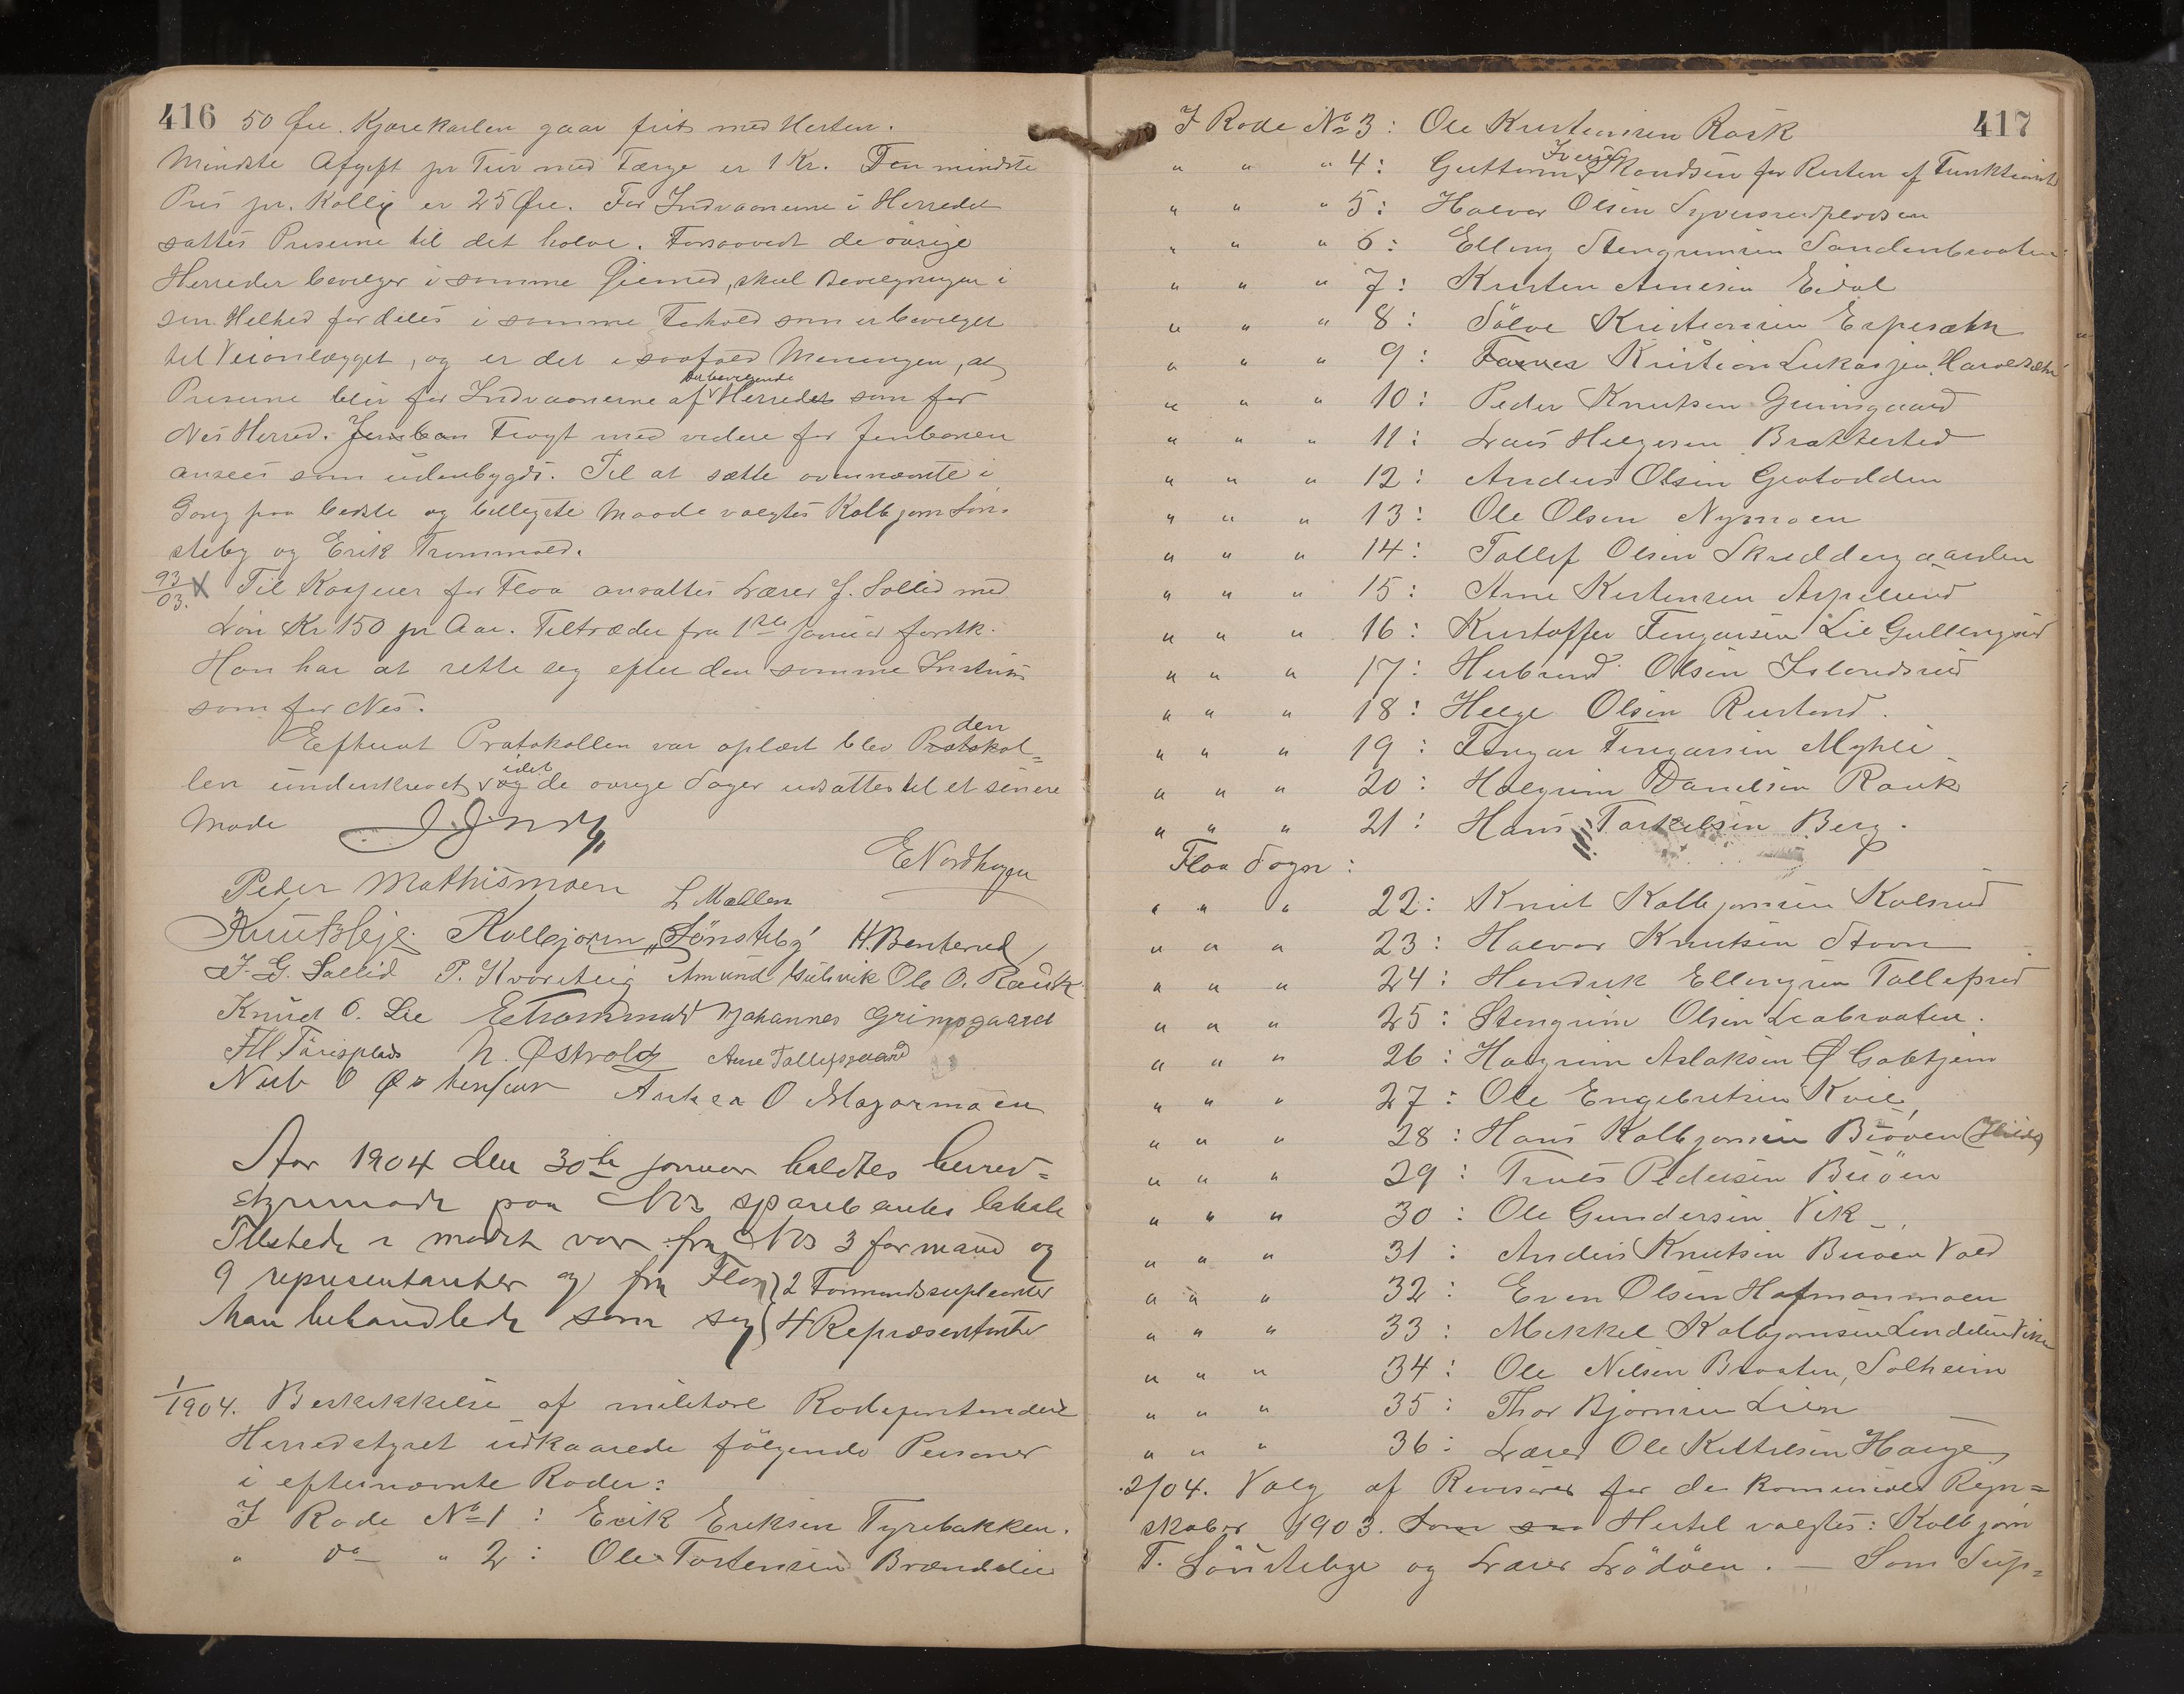 416
50 Øre. Kjørekarlen gaar frit med Hesten.
Mindste Afgift pr Tur med Færge er 1 Kr. Den mindste
Pris pr. Kolli er 25 Øre. For Indvaanerne i Herredet
sattes Priserne til det halve. Forsaavidt de øvrige
Herreder bevilger i samme Øiemed, skal Bevilgningen i
sin Helhed fordeles i samme Forhold som er bevilget
til Veianlægget, og er det i saafald Meningen, at
Priserne blir for Indvaanerne af det bevilgende Herreder som for
Nes Herred. Jernban Fragt med videre for Jernbanen
ansees som udenbygds. Til at sætte ovennævnte i
Gang paa bedste og billigste Maade valgtes Kolbjørn Søn-
steby og Erik Trommald.
93/03. X Til Kasserer for Flaa ansattes Lærer J. Sollid med
Løn Kr 150 pr Aar. Tiltræder fra 1ste Januar førstk.
Han har at rette seg efter den samme Instrux
som for Nes.
Efterat Protokollen var oplæst blev den Protokol=
len underskrevet, og idet de øvrige Sager udsattes til et senere
Møde
E Nordhagen
Peder Mathismoen L Mæhlen
Knut Bleje Kolbjørn Sønsteby H. Benterud
J. G. Sollid P. Kvarsteig Amund Gulsvik Ole O. Rauk
Knud O. Lie E Trommald Johannes Grimsgaard
N. Østvold Arne Tollefsgaard
Aar 1904 den 30te januar holdtes herred=
styremøde paa Nes sparebankes lokale
Tilstede i mødet var fra Nes 3 formænd og
9 representanter og fra Flaa } 2 Formandssupleanter
Man behandlede som sag } 4 Repræsentanter
1/1904. Beskikkelse af militære Rodeintendere
Herredstyret udkaarede følgende Personer
i efternævnte Roder:
I Rode No 1 : Erik Eriksen Tyrebakken.
" do " 2 : Ole Torstensen Brændelie
417
I Rode No 3 : Ole Kristiansen Rask
" " " 4 : Guttorm Iversen Rondsen for Resten af Funktionst
" " " 5 : Halvor Olsen Syversrudpladsen
" " " 6 : Elling Stengrimsen Sandenbraaten
" " " 7 : Kristen Arnesen Eidal
" " " 8 : Sølve Kristiansen Espesæth
" " " 9 : Kristian Lukassen, Haraldsæth
" " " 10 : Peder Knutsen Grimsgaard
" " " 11 : Lars Helgesen Brattested
" " " 12 : Anders Olsen Grotodden
" " " 13 : Ole Olsen Nymoen
" " " 14 : Tollef Olsen Skreddergaarden
" " " 15 : Arne Kristensen Aspelund
" " " 16 : Kristoffer Fingarsen Lie Gullengsrud
" " " 17 : Herbrand Olsen Islandsrud
" " " 18 : Helge Olsen Rustand.
" " " 19 : Fingar Fingarsen Myhre
" " " 20 : Halgrim Danielsen Rauk
" " " 21 : Hans Torkelsen Berg.
Flaa Sogn :
" " " 22 : Knut Kolbjørnsen Kolsrud
" " " 23 : Halvor Knutsen Stavn
" " " 24 : Hendrik Ellingsen Tollefsrud
" " " 25 : Stengrim Olsen Leabraaten.
" " " 26 : Halgrim Aslaksen Ø Goletjern
" " " 27 : Ole Engebretsen Kvie
" " " 28 : Hans Kolbjørnsen Bruøen
" " " 29 : Truls Pedersen Bruøen
" " " 30 : Ole Gundersen Vik
" " " 31 : Anders Knutsen Bruøen Vold
" " " 32 : Even Olsen Hafmonmoen
" " " 33 : Mikkel Kolbjørnsen Lindelien Viken
" " " 34 : Ole Nilsen Braaten, Solheim
" " " 35 : Thor Bjørnsen Lien
" " " 36 : Lærer Ole Kittilsen Hauge
2/04. Valg af Revisorer for de kommunale Regn=
skaber 1903. Som saa Hertil valgtes: Kolbjørn
T. Sønsteby og Lærer Lødøen. — Som Sup=